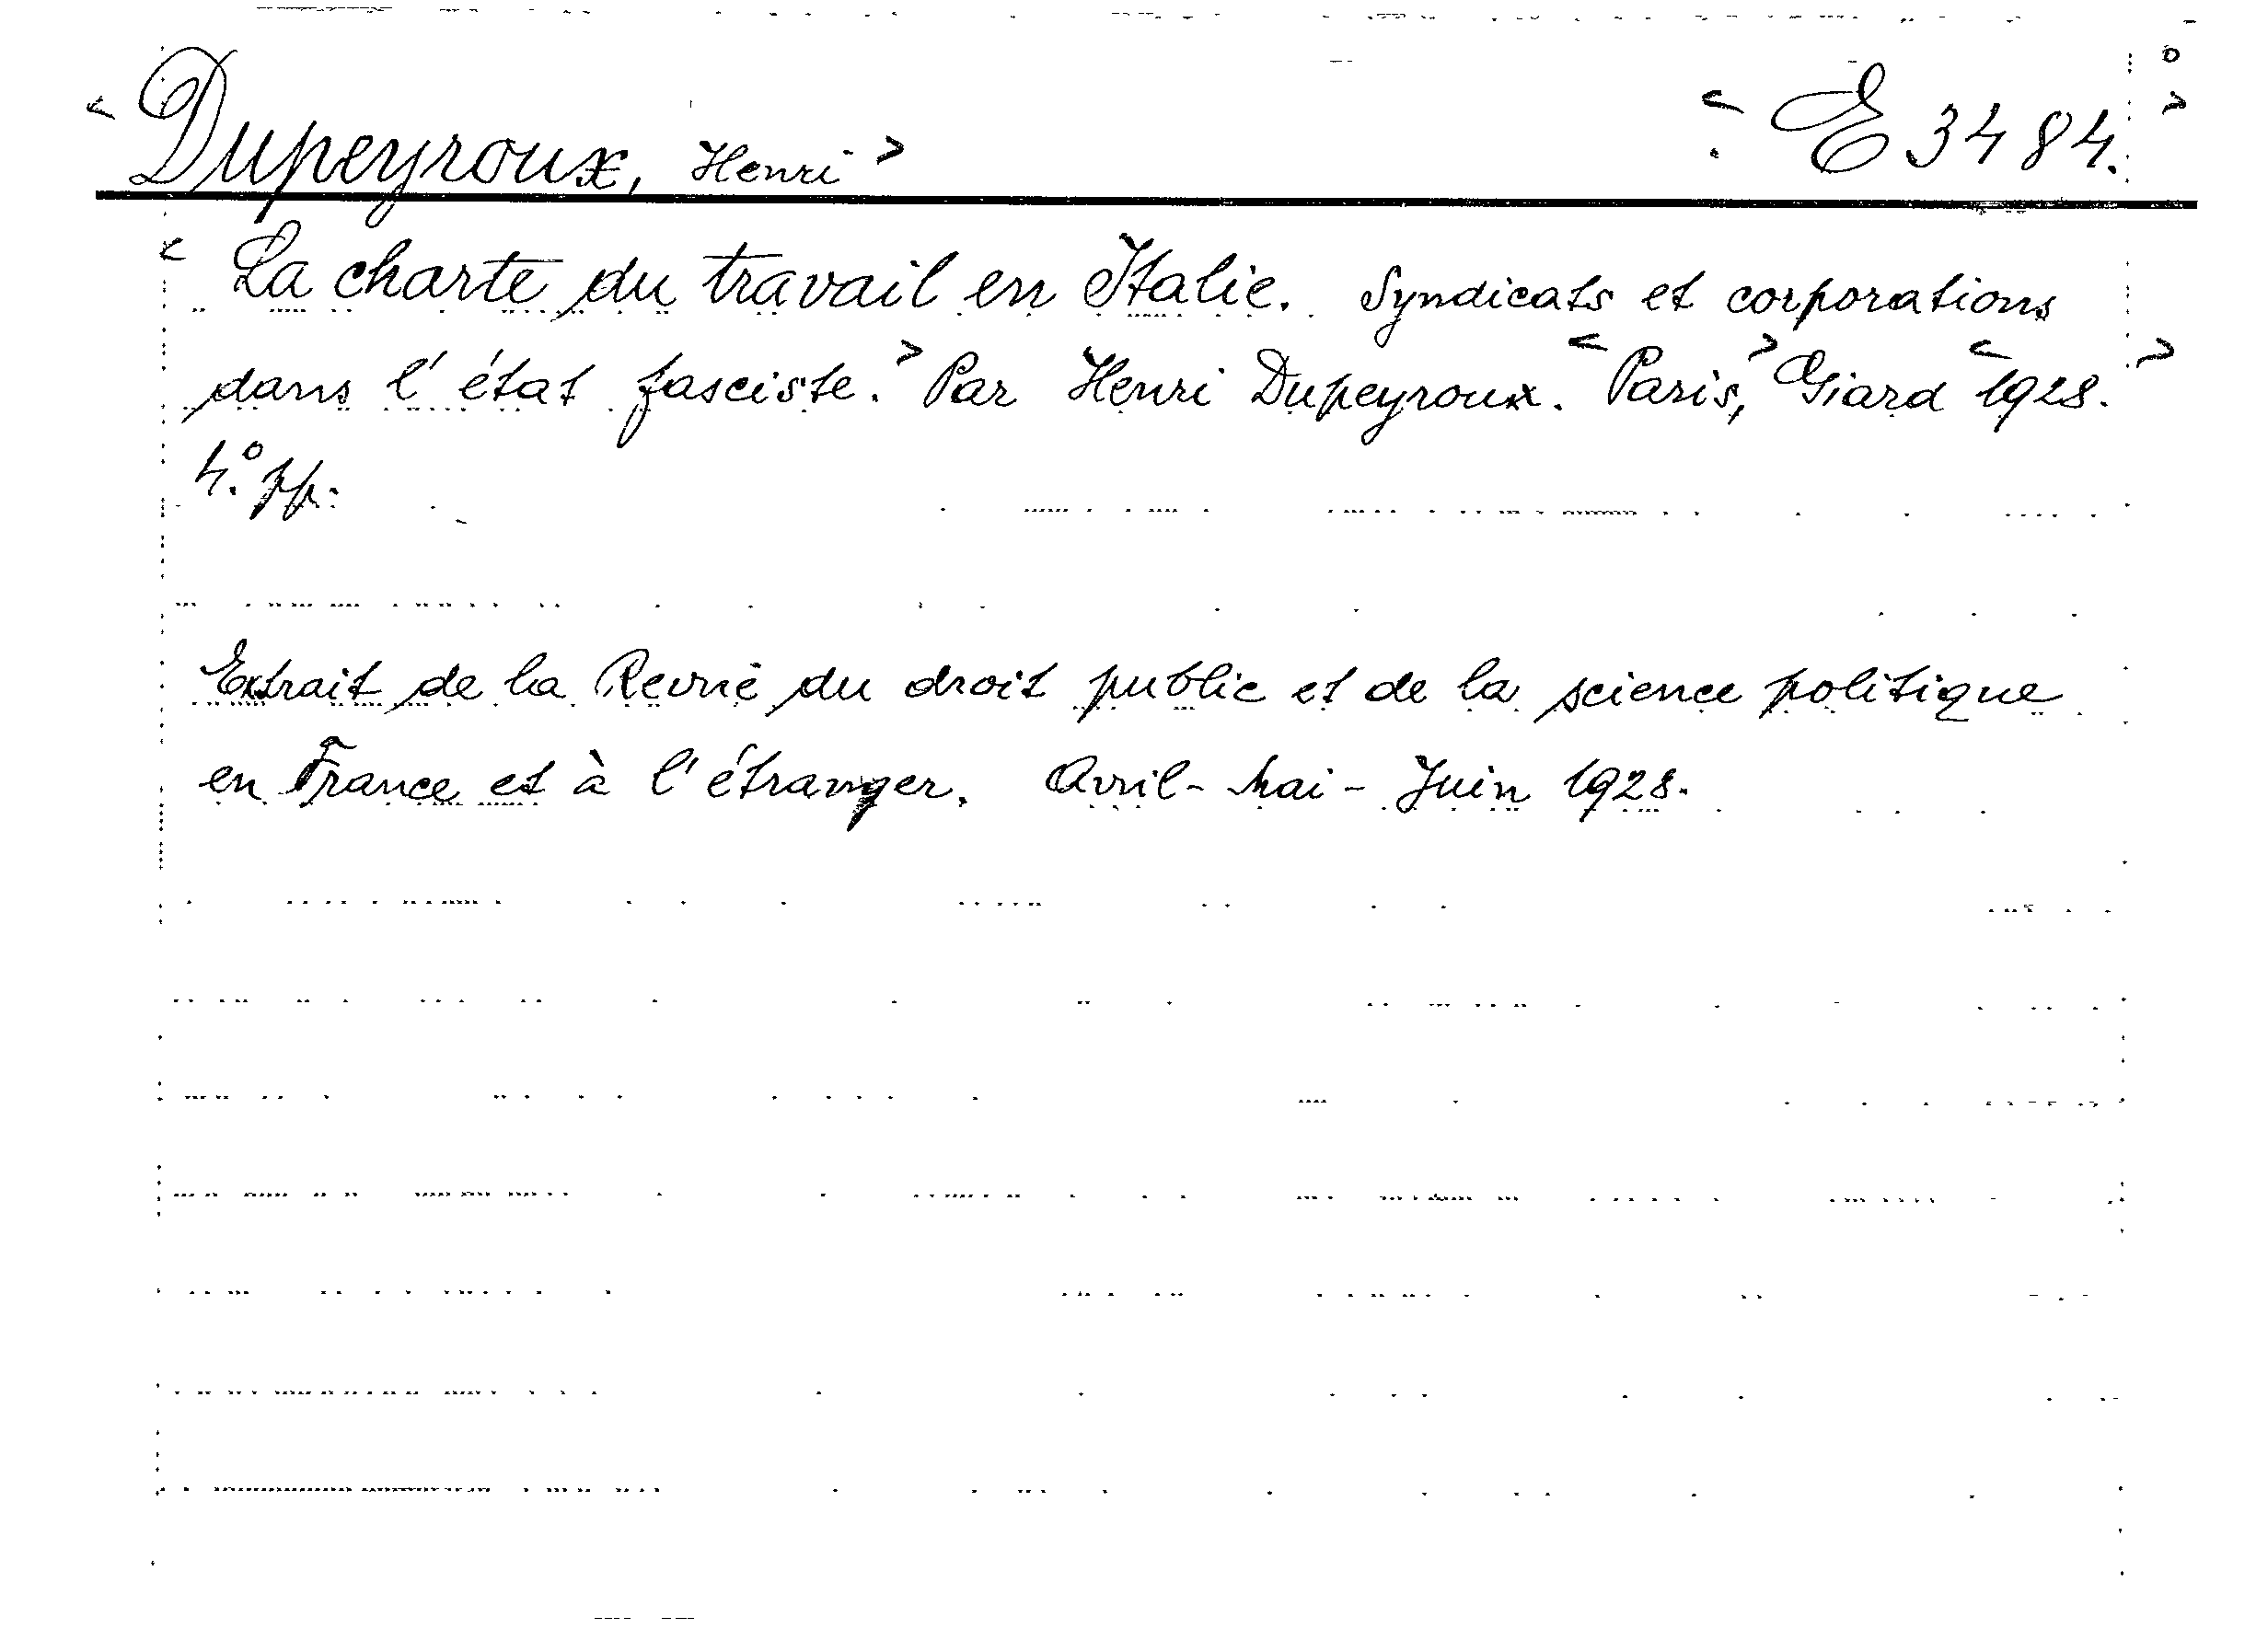 < Dupeyroux, Henri > < E 3484. >
< La charte du travail en Italie. Syndicats et corporations
dans l'état fasciste. > Par Henri Dupeyroux. < Paris, > Giard < 1928. >
4.° pp.
Extrait de la Revue du droit public et de la science politique
en France et à l'étranger. Avril - Mai - Juin 1928.